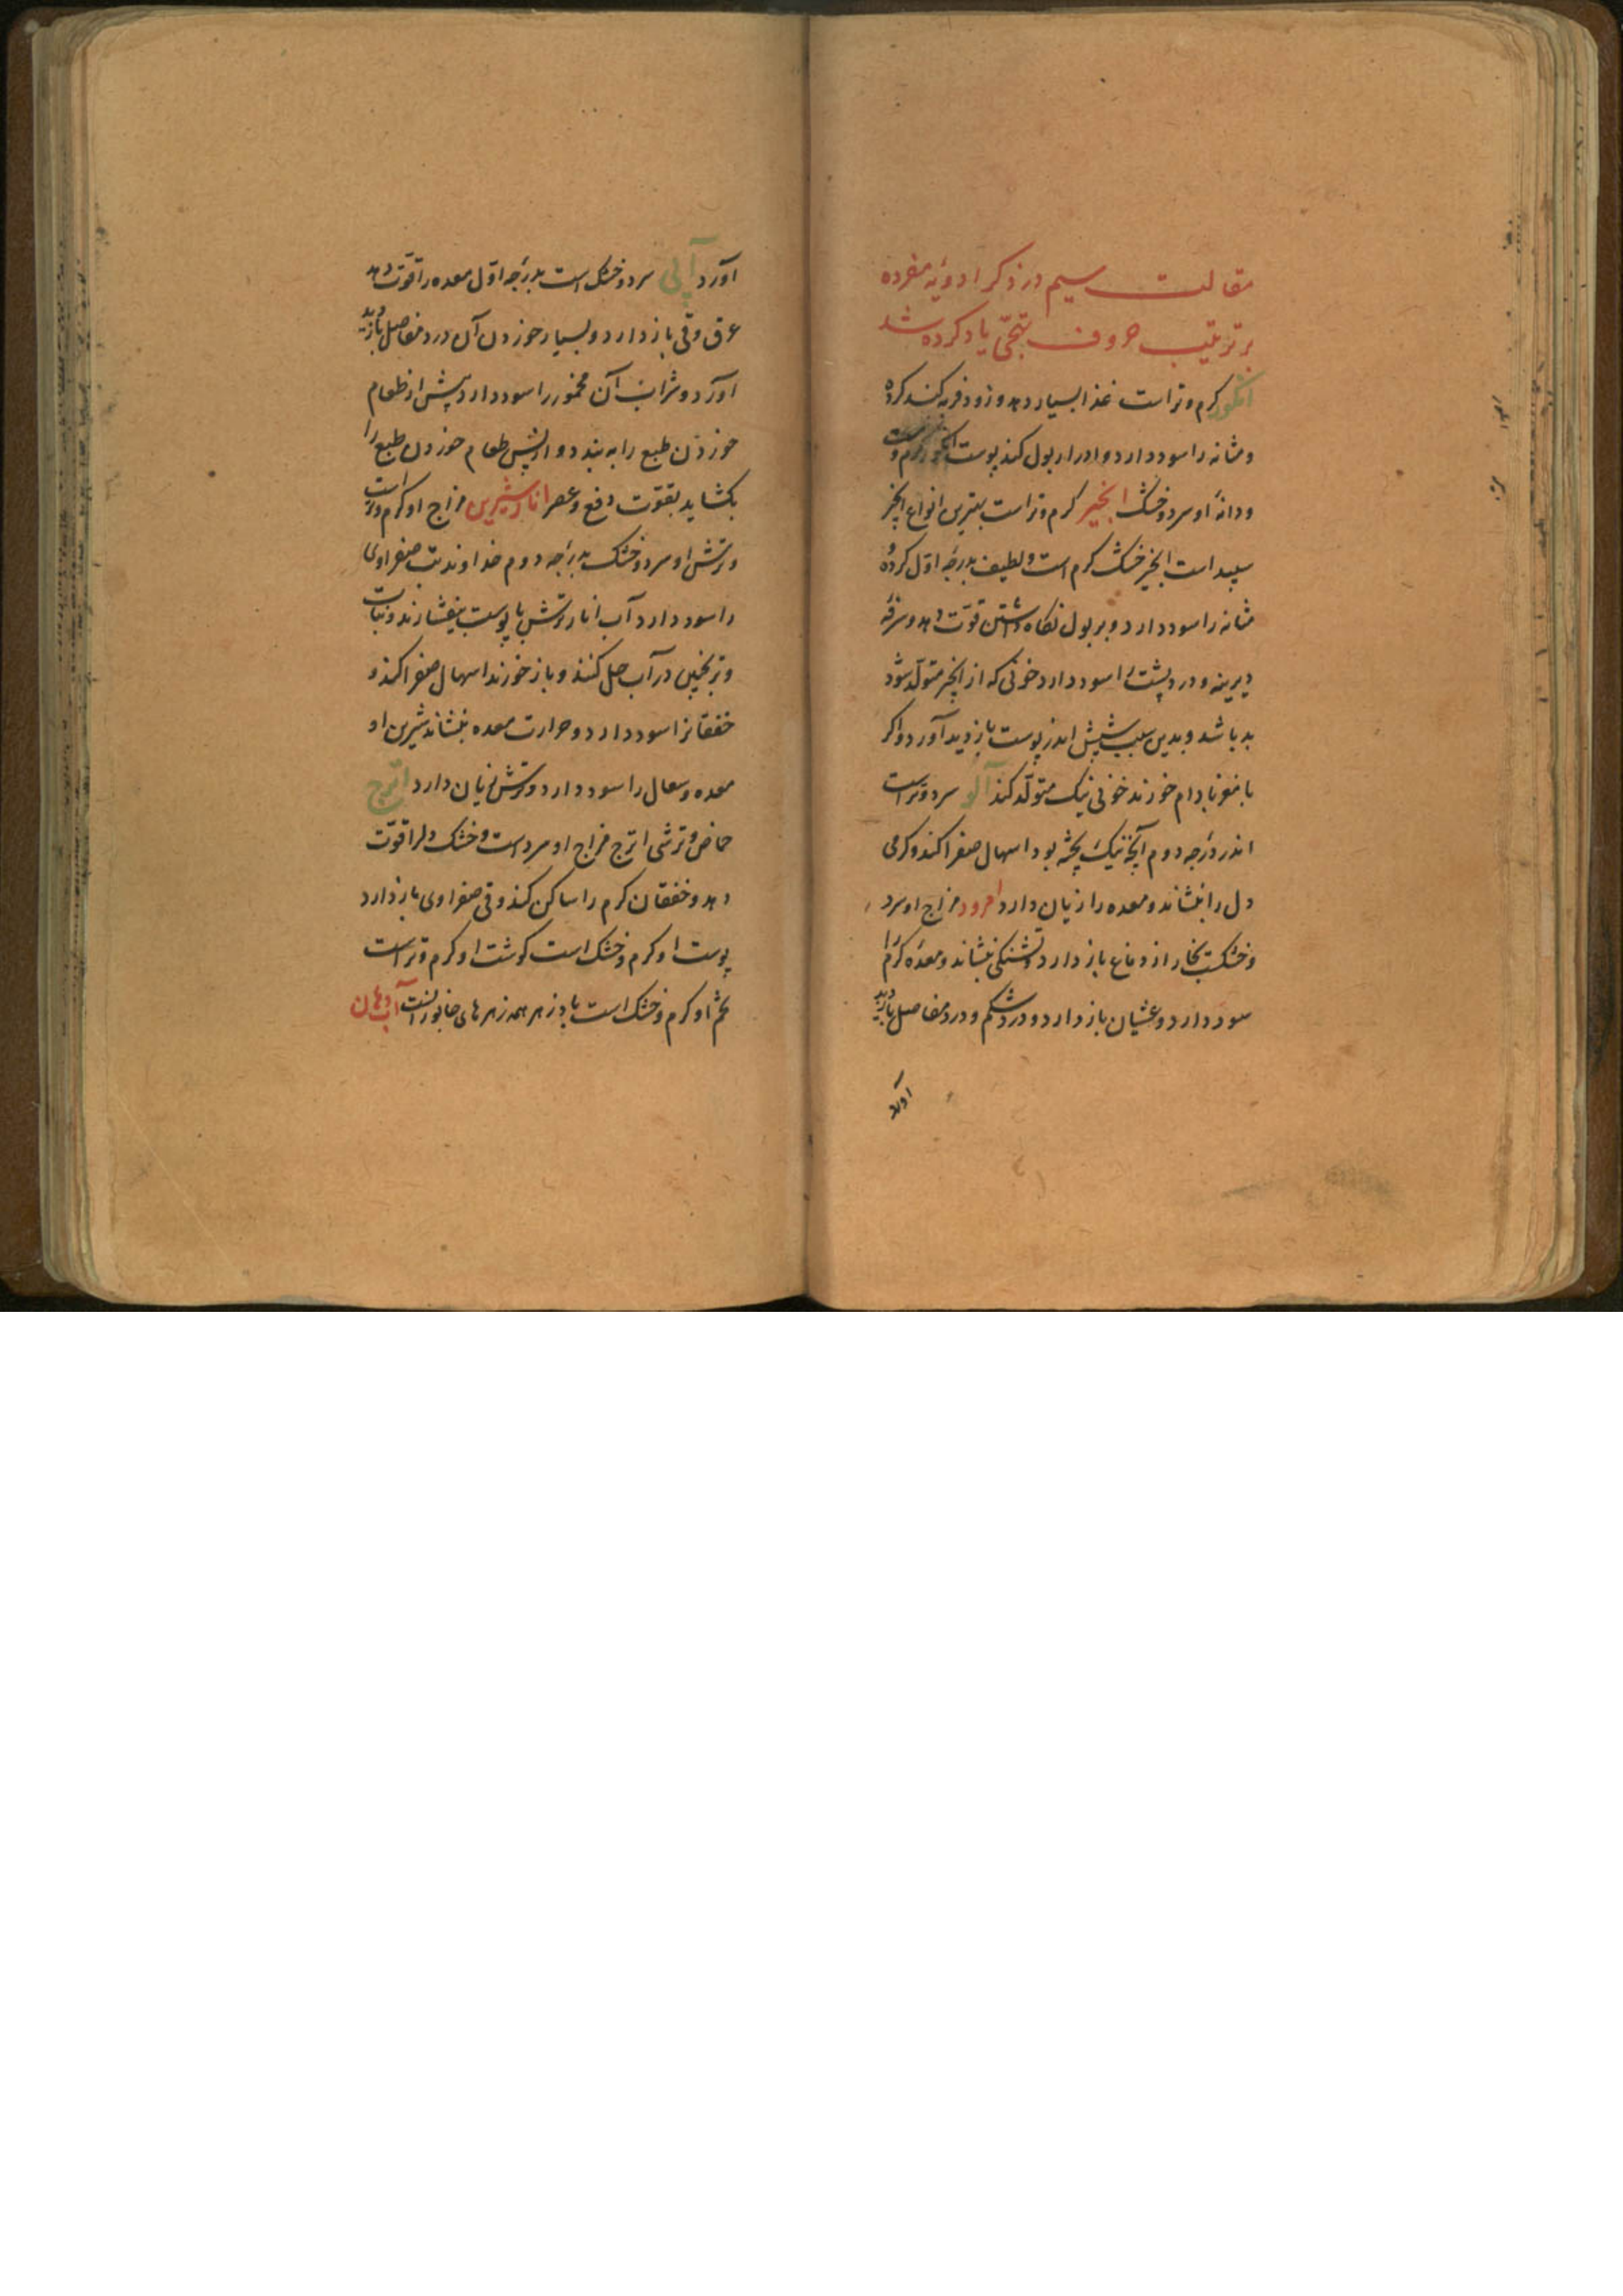 مقالت سیم در ذکر ادویهٔ مفرده
بر ترتیب حروف تهجّی یاد کرده شد
انکور کرم و تر است غذا بسیار دهد و زود فربه کند کرده
و مثانه را سود دارد و ادرار بول کند پوست انکور کرم و
و دانهٔ او سرد و خشک انجیر کرم و تر است بهترین انواع انجیر
سپید است انجیر خشک کرم است و لطیف بدرجهٔ اوّل کرده و
مثانه را سود دارد و بر بول نکاه داشتن قوّت دهد و سرفهٔ
دیرینه و درد پشت را سود دارد خونی که از انجیر متولّد شود
بد باشد و بدین سبب شپش اندر پوست بازدید آورد و اکر
با مغز بادام خورند خونی نیک متولّد کند آلو سرد و تر است
اندر درجه دوم آنچه نیک پخته بود اسهال صفرا کند و کرمی
دل را بنشاند و معده را زیان دارد امرود مزاج او سرد
و خشکست بخار از دماغ باز دارد و تشنکی بنشاند و معدهٔ کرم را
سود دارد و غشیان باز دارد و درد شکم و درد مفاصل بازدید
آورد
آورد آبی سرد و خشک است بدرجه اوّل معده را قوّت دهد
عرق و قی باز دارد و بسیار خوردن آن درد مفاصل بازدید
آورد و شراب آن مخمور را سود دارد پیش از طعام
خوردن طبع را به بندد و از پس طعام خوردن طبع را
بکشاید بقوّت دفع و عصر انار شیرین مزاج او کرم و تر است
و ترش او سرد و خشک بدرجه دوم خداوند تب صفراوی
را سود دارد آب انار ترش با پوست بیفشارند و نبات
و ترنجبین در آب حل کنند و باز خورند اسهال صفرا کند و
خفقانرا سود دارد و حرارت معده بنشاند شیرین او
معده و سعال را سود دارد و ترش زیان دارد اترج
حماض و ترشی اترج مزاج او سرد است و خشک دلرا قوّت
دهد و خفقان کرم را ساکن کند و قی صفراوی باز دارد
پوست او کرم و خشک است کوشت او کرم و تر است
تخم او کرم و خشک است پادزهر همه زهرهای جانورانست آب دهان